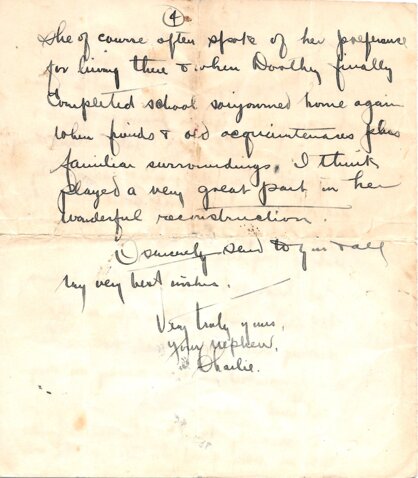 4
She of course often spoke of her preference
for living there & when Dorothy finally
Completed school sojourned home again
when friends & old acquaintenances plus
familiar surroundings, I think
played a very great part in her
wonderful reconstruction.
I sincerely send to you & all
my very best wishes.
Very truly yours,
your nephew,
Charlie.